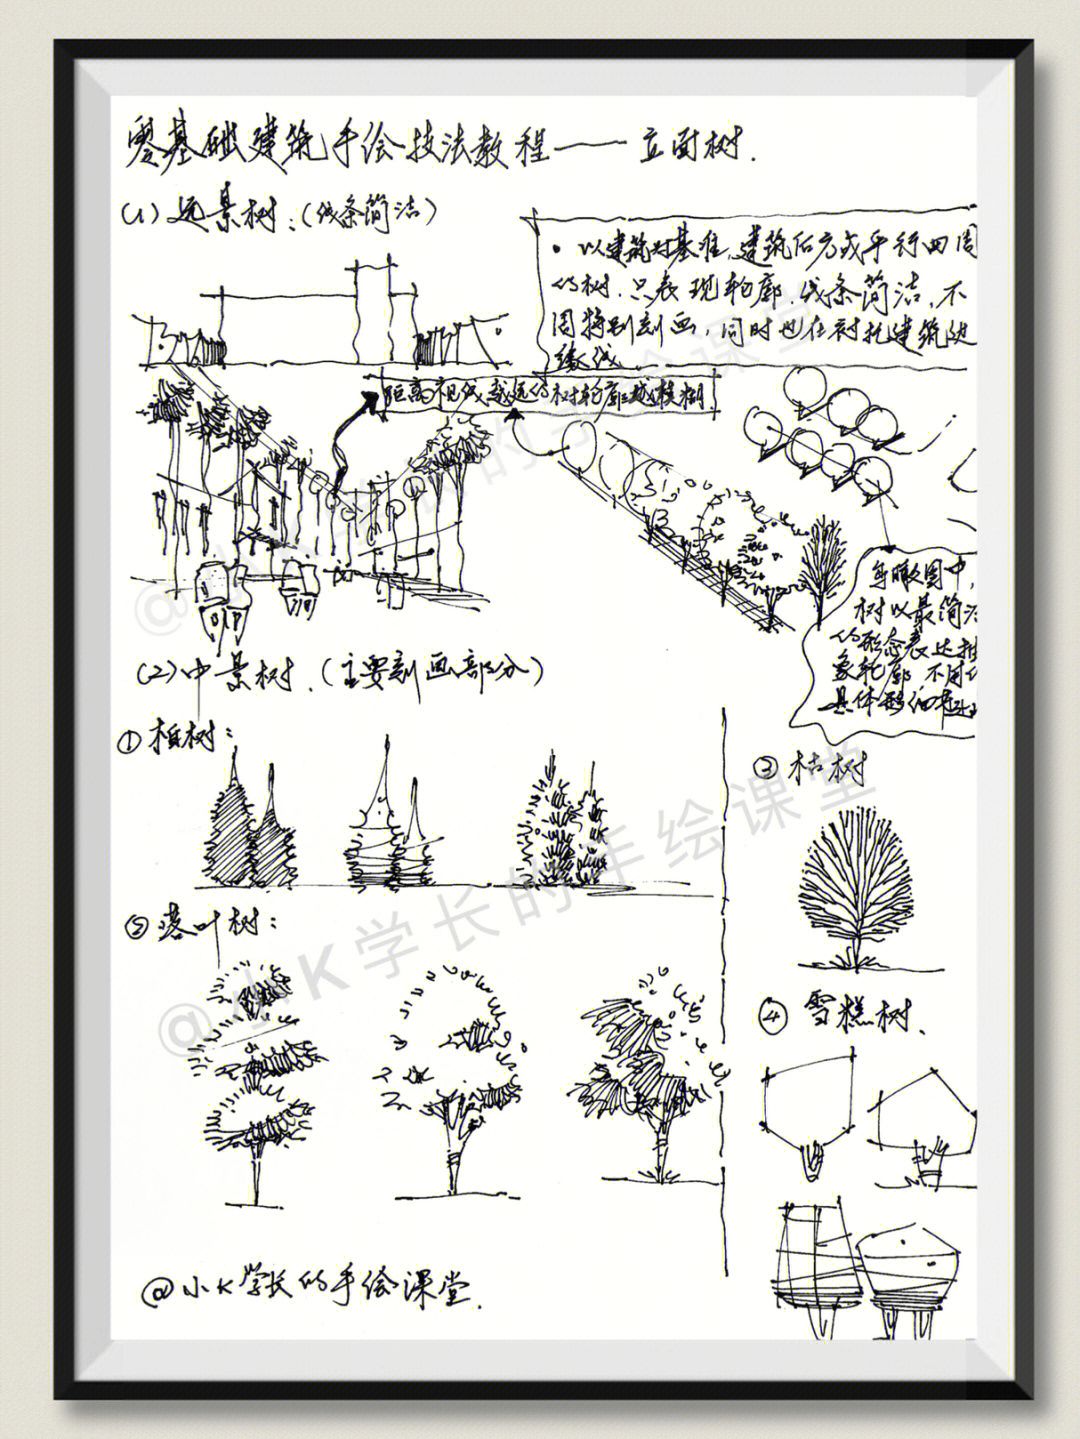 零基础建筑手绘技法教程——立面树.
(1)远景树:(线条简洁)
·以建筑为基准,建筑后方或平行四周
的树.只表现轮廓.线条简洁,不
用特别刻画,同时也在衬托建筑边
缘线
距离视线越远的树轮廓越模糊
鸟瞰图中,
树以最简洁
的形态表达抽
象轮廓,不用
具体
(2)中景树.(主要刻画部分)
①柏树:
③枯树
②落叶树:
④雪糕树.
@小K学长的手绘课堂.
@小K学长的手绘课堂
@小K学长的手绘课堂